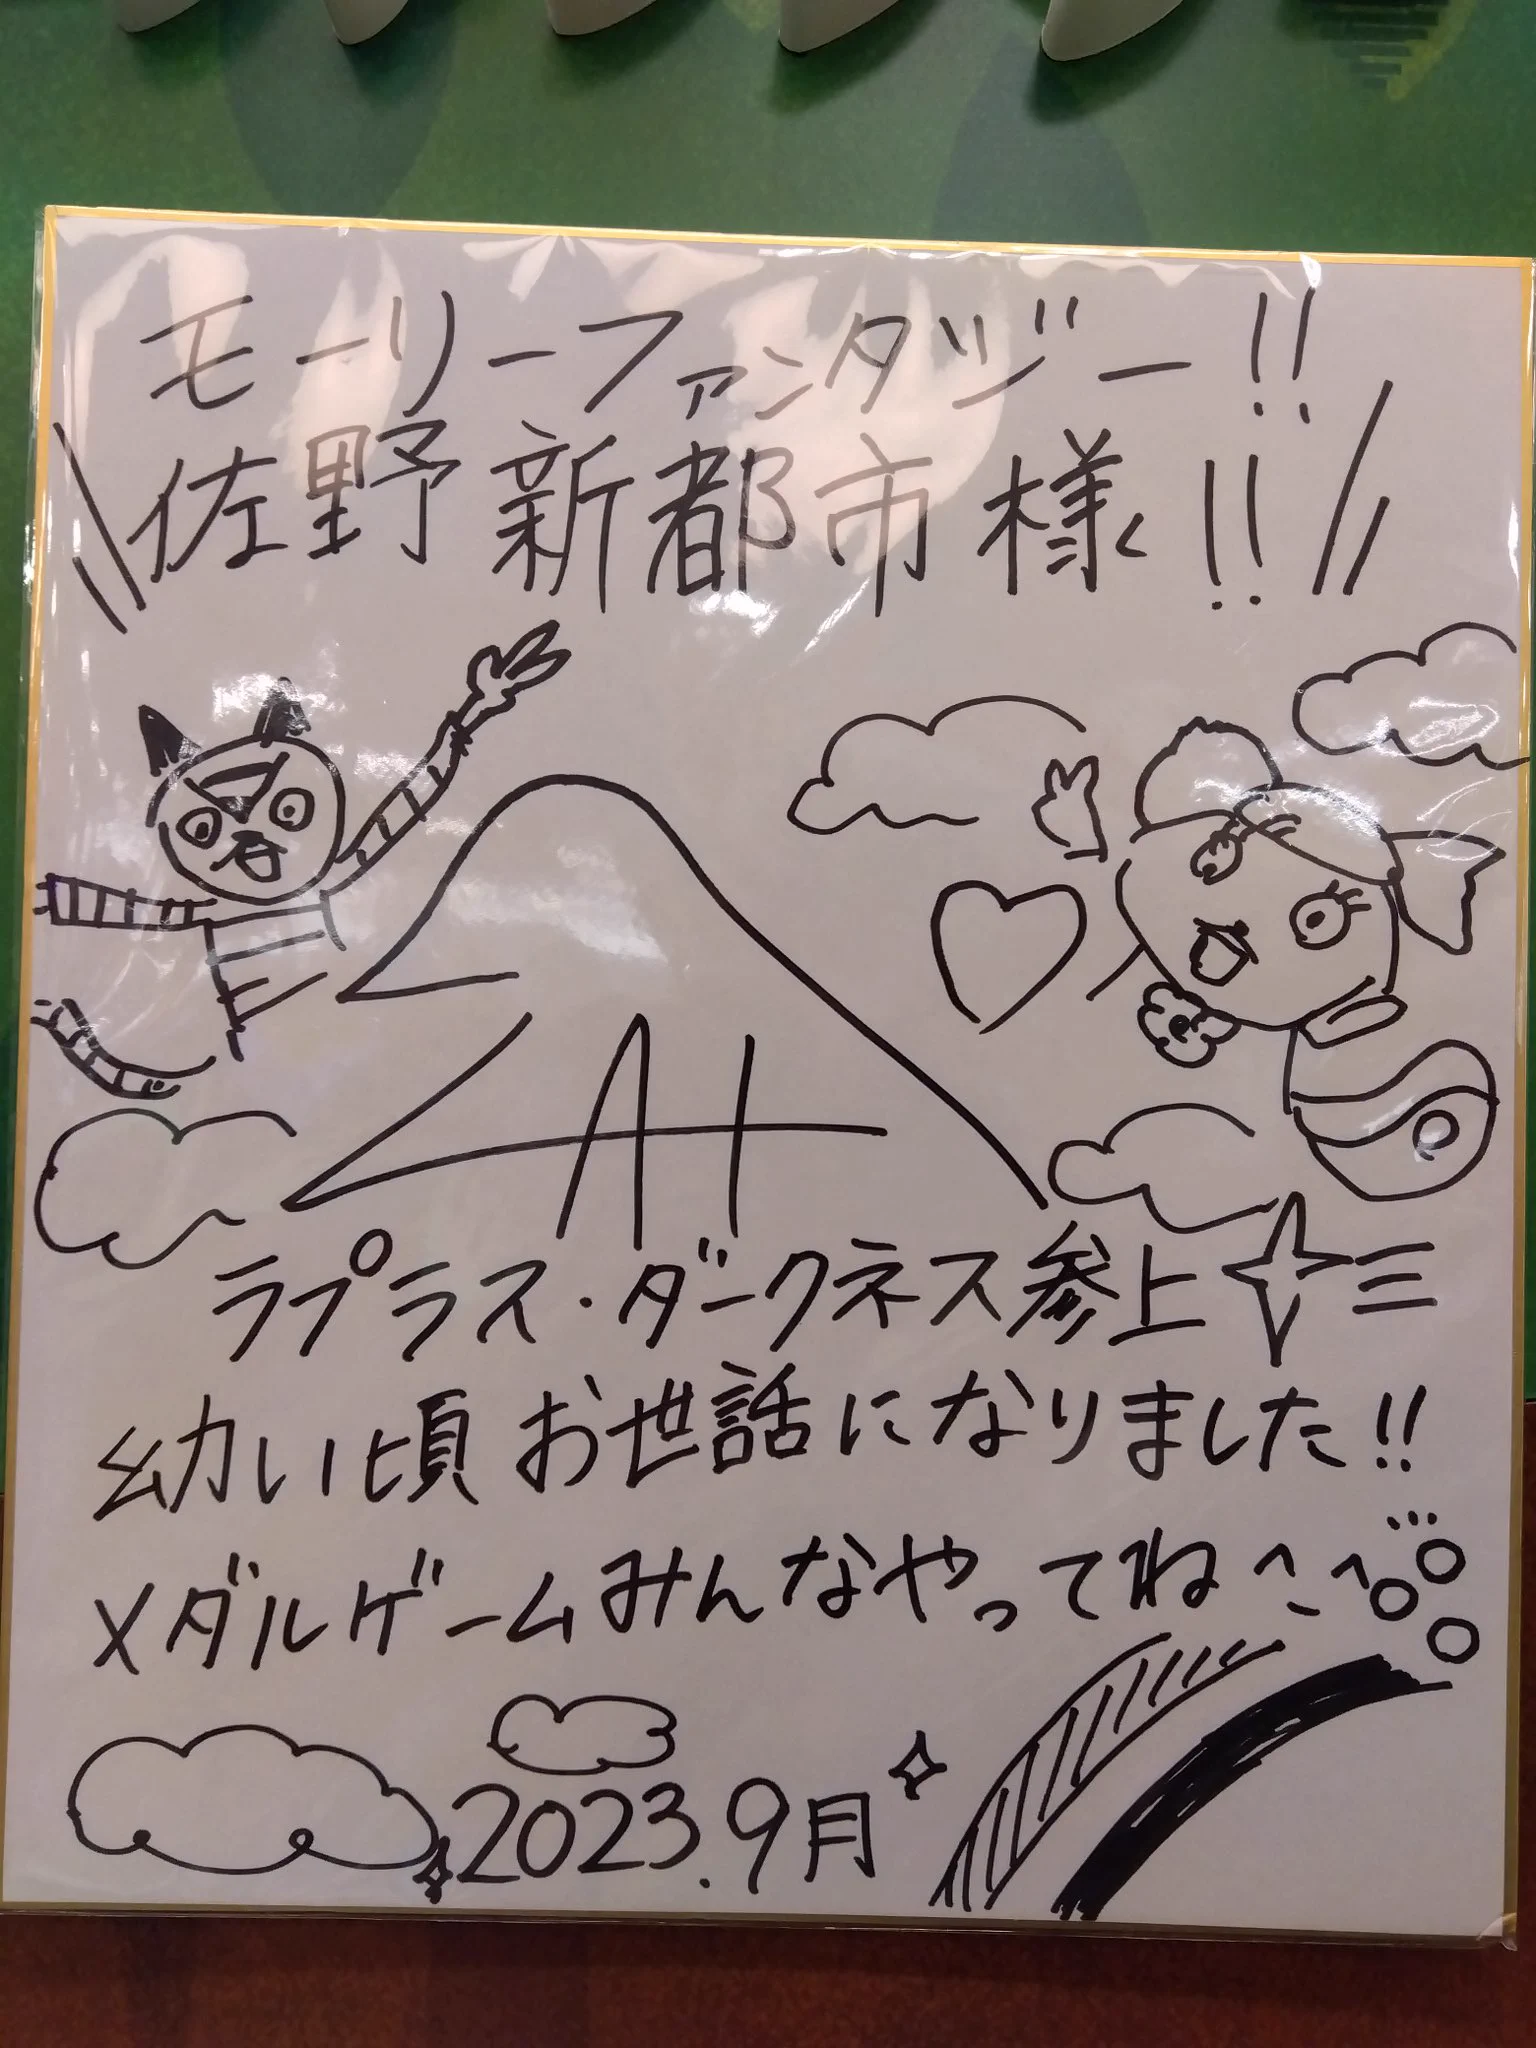 モーリーファンタジー!!
佐野新都市様!!
ラプラス・ダークネス参上
幼い頃お世話になりました!!
メダルゲームみんなやってね
2023.9月